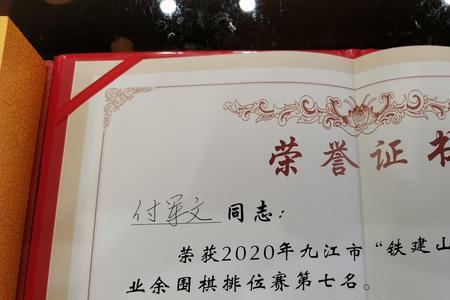 荣誉证书
付军文 同志：
荣获2020年九江市“铁建山
业余围棋排位赛第七名。